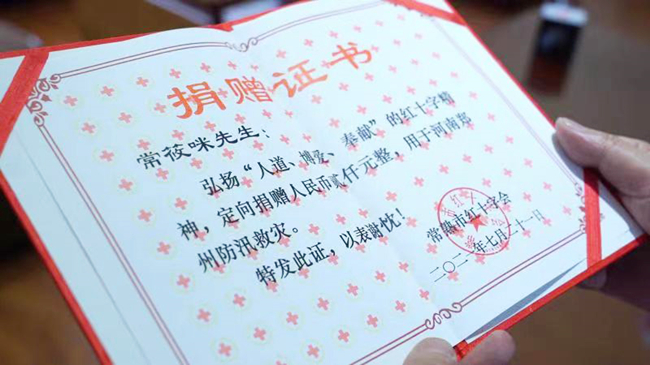 捐赠证书
常筱咪先生：
弘扬“人道、博爱、奉献”的红十字精
神，定向捐赠人民币贰仟元整，用于河南郑
州防汛救灾。
特发此证，以表谢忱！
常熟市红十字会
二〇二一年七月二十一日